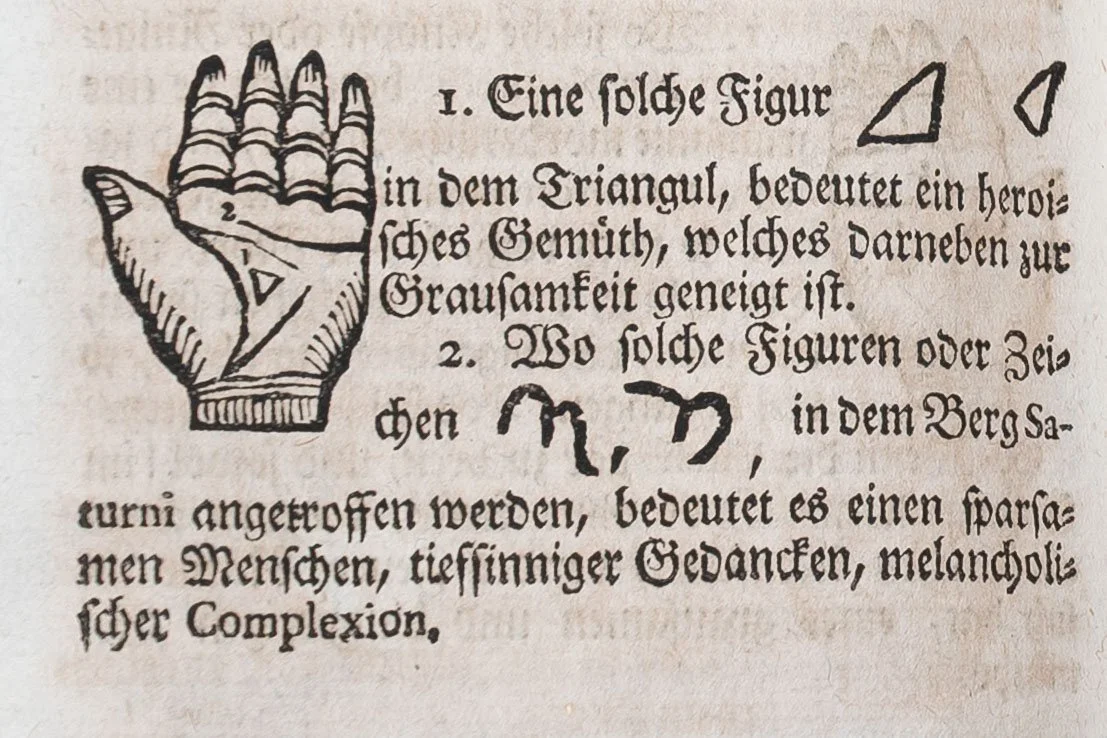 1. Eine solche Figur
in dem Triangul, bedeutet ein heroi-
sches Gemüth, welches darneben zur
Grausamkeit geneigt ist.
2. Wo solche Figuren oder Zei-
chen , , in dem Berg Sa-
turni angetroffen werden, bedeutet es einen sparsa-
men Menschen, tieffsinniger Gedancken, melancholi-
scher Complexion.
2
1